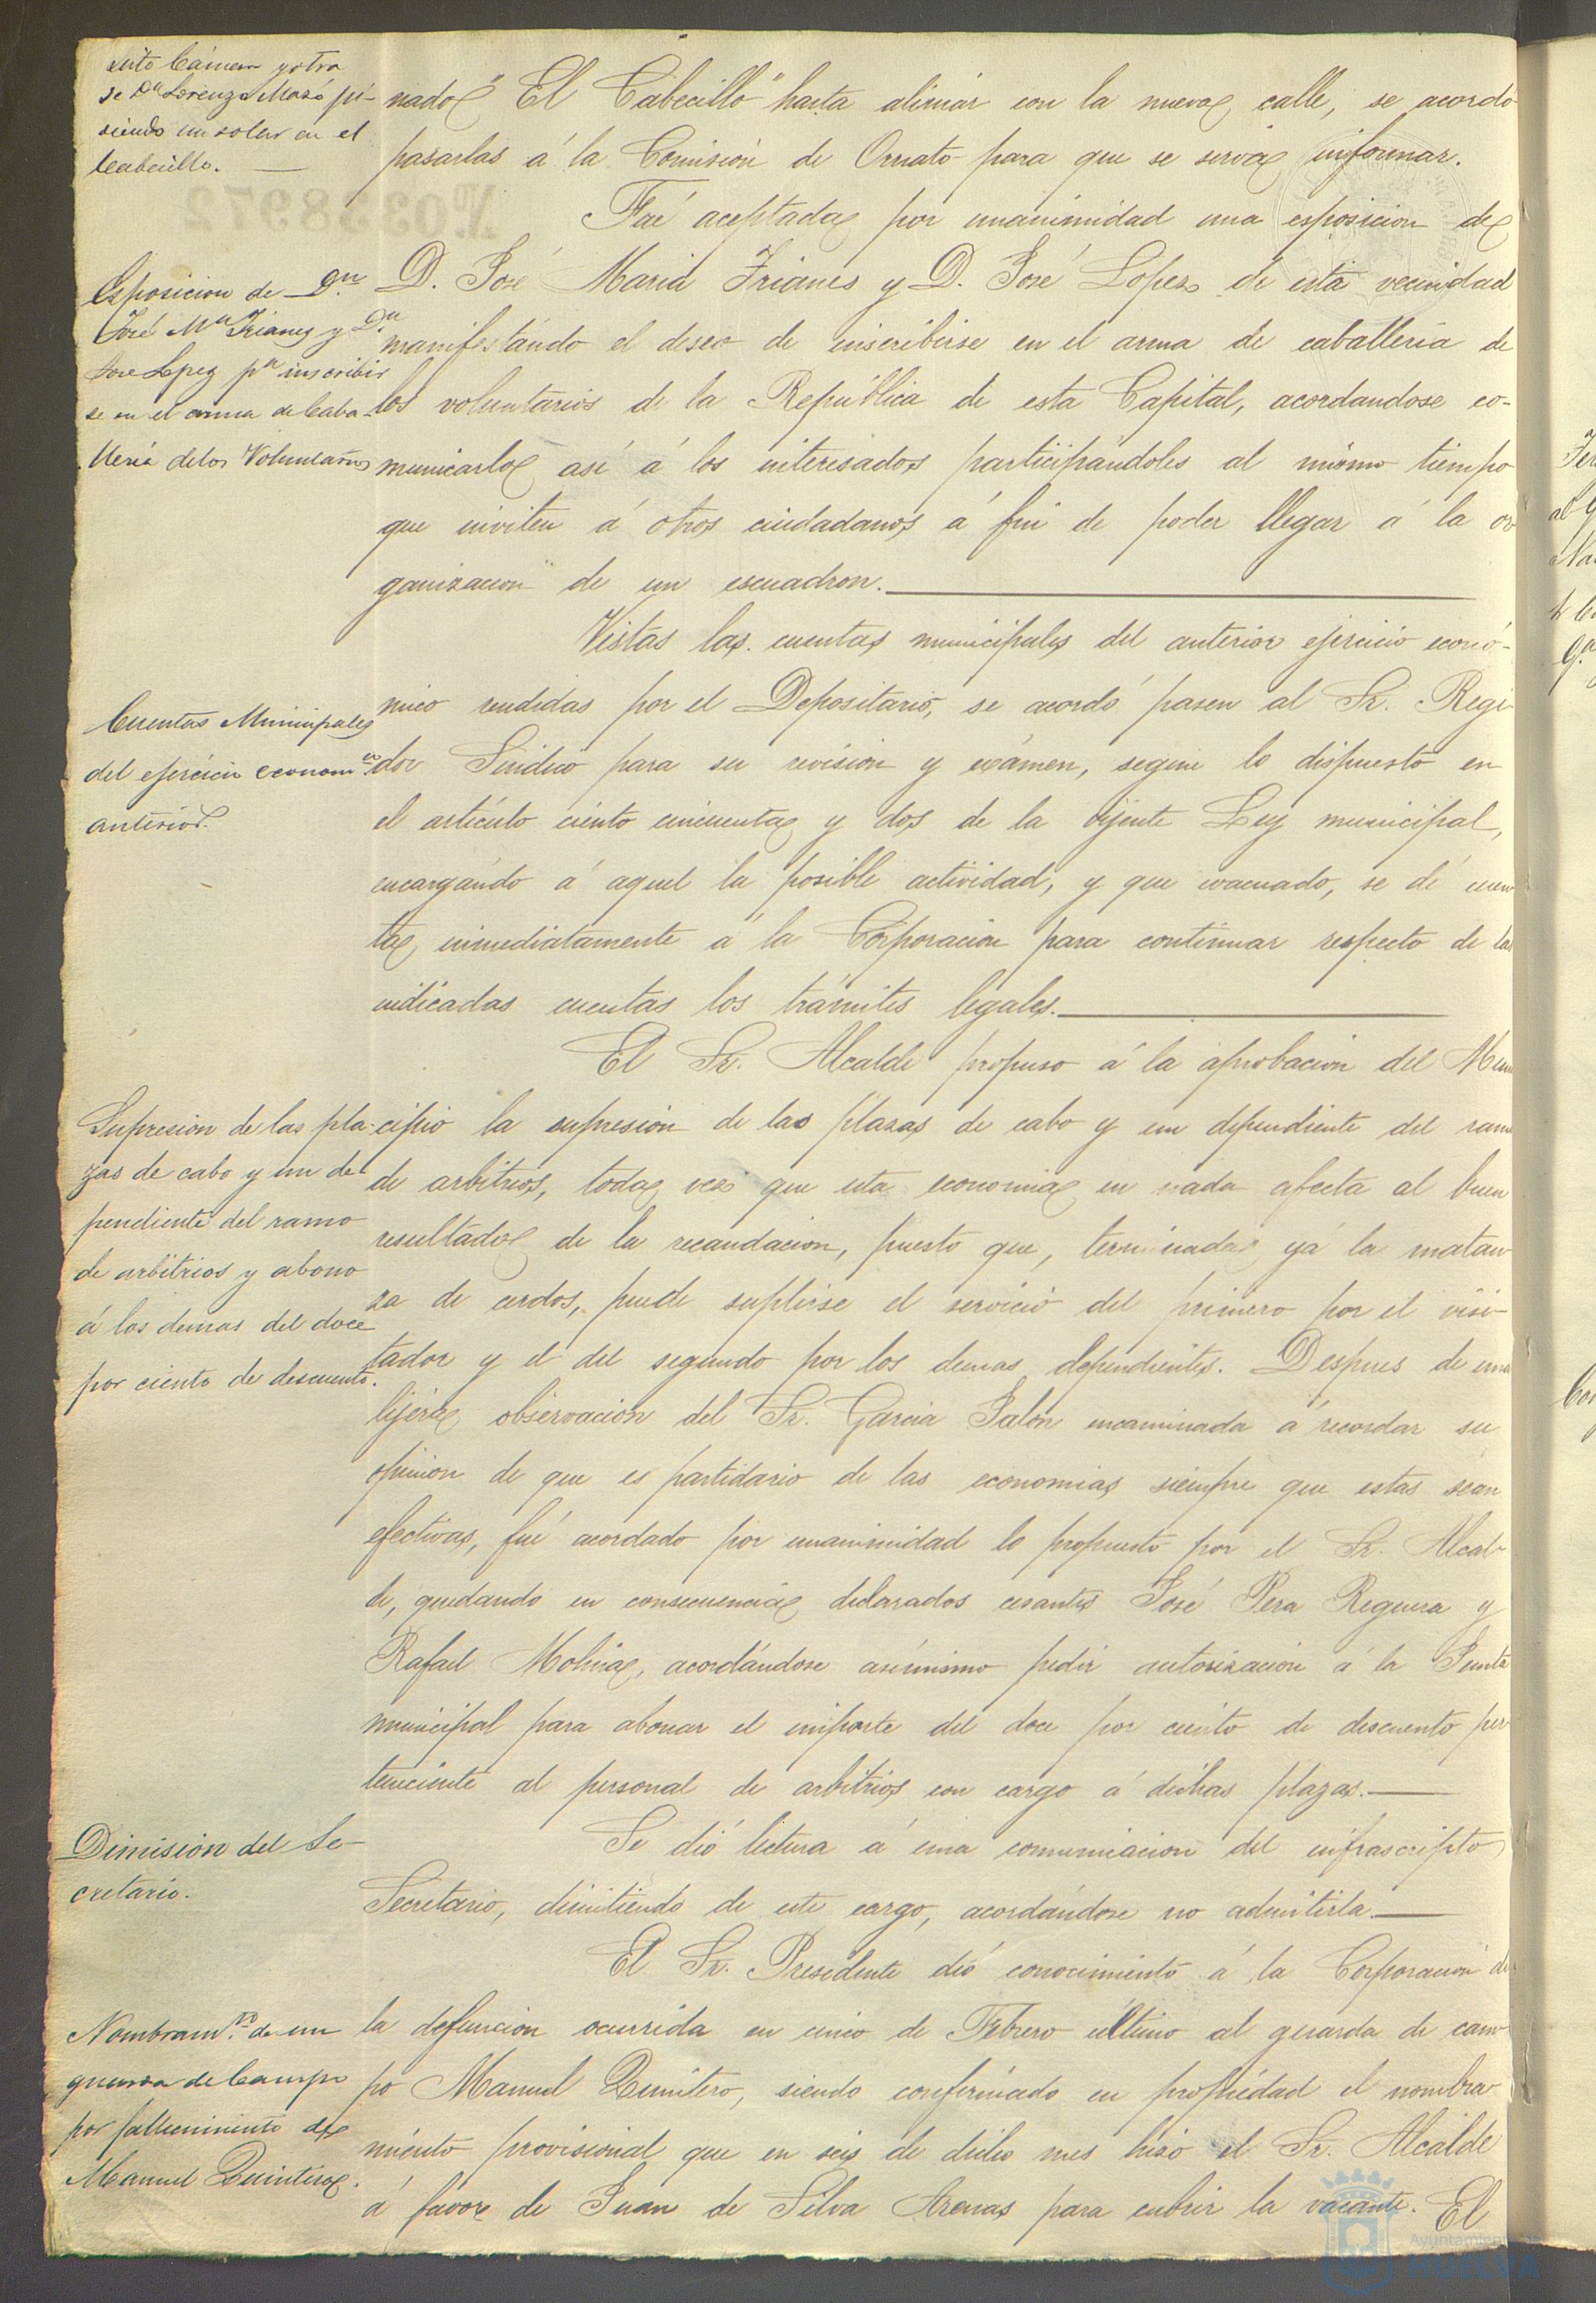 sito Cámara y otra
de Dª Lorenza Mazo pi-
diendo un solar en el
Cabecillo.
nado "El Cabecillo" hasta alinear con la nueva calle, se acordó
pasarlas á la Comisión de Ornato para que se serva informar.
Nº 0238972
Fué aceptada por unanimidad una esposicion de
Esposicion de Dn
José Mª Trianes y Dn
José Lopez pª inscribir
se en el arma de Caba-
lleria de los Voluntarios
D. José Maria Trianes y D. José Lopez de esta vecindad
manifestando el deseo de inscribirse en el arma de caballería de
los voluntarios de la República de esta Capital, acordandose co-
municarlo así á los interesados participándoles al mismo tiempo
que inviten á otros ciudadanos á fin de poder llegar á la or
ganizacion de un escuadron.
Vistas las cuentas municipales del anterior ejercicio econó-
Cuentas Municipales
del ejercicio economco
anterior.
mico rendidas por el Depositario, se acordó pasen al Sr. Regi
dor Sindico para su revision y exámen, segun lo dispuesto en
el artículo ciento cincuenta y dos de la vijente Ley municipal,
encargándo á aquel la posible actividad, y que evacuado, se dé cuen
ta inmediatamente á la Corporacion para continuar respecto de las
indicadas cuentas los trámites legales.
El Sr. Alcalde propuso á la aprobacion del Muni
Supresion de las pla-
zas de cabo y un de
pendiente del ramo
de arbitrios y abono
á los demas del doce
por ciento de descuento.
cipio la supresión de las plazas de cabo y un dependiente del ramo
de arbitrios, toda vez que esta economia en nada afecta al buen
resultado de la recaudacion, puesto que, terminada yá la matan
za de cerdos, puede suplirse el servicio del primero por el visi-
tador y el del segundo por los demas dependientes. Despues de una
lijera observación del Sr. Garcia Jalon encaminada á recordar su
opinion de que es partidario de las economias siempre que estas sean
efectivas, fué acordado por unanimidad lo propuesto por el Sr. Alcal-
de, quedando en consecuencia declarados cesantes José Pera Reguera y
Rafael Molina, acordándose asímismo pedir autorizacion á la Junta
municipal para abonar el importe del doce por ciento de descuento per
teneciente al personal de arbitrios con cargo á dichas plazas.
Dimisión del Se-
cretario.
Se dió lectura á una comunicacion del infrascripto
Secretario, dimitiendo de este cargo, acordándose no admitirla.
El Sr. Presidente dió conocimiento á la Corporacion de
Nombramto de un
guarda de Campo
por fallecimiento de
Manuel Quintero.
la defuncion ocurrida en cinco de Febrero último al guarda de cam-
po Manuel Quintero, siendo confirmado en propiedad el nombra
miento provisional que en seis de dicho mes hizo el Sr. Alcalde
á favor de Juan de Silva Arenas para cubrir la vacante. El
Ayuntamiento de
HUELVA